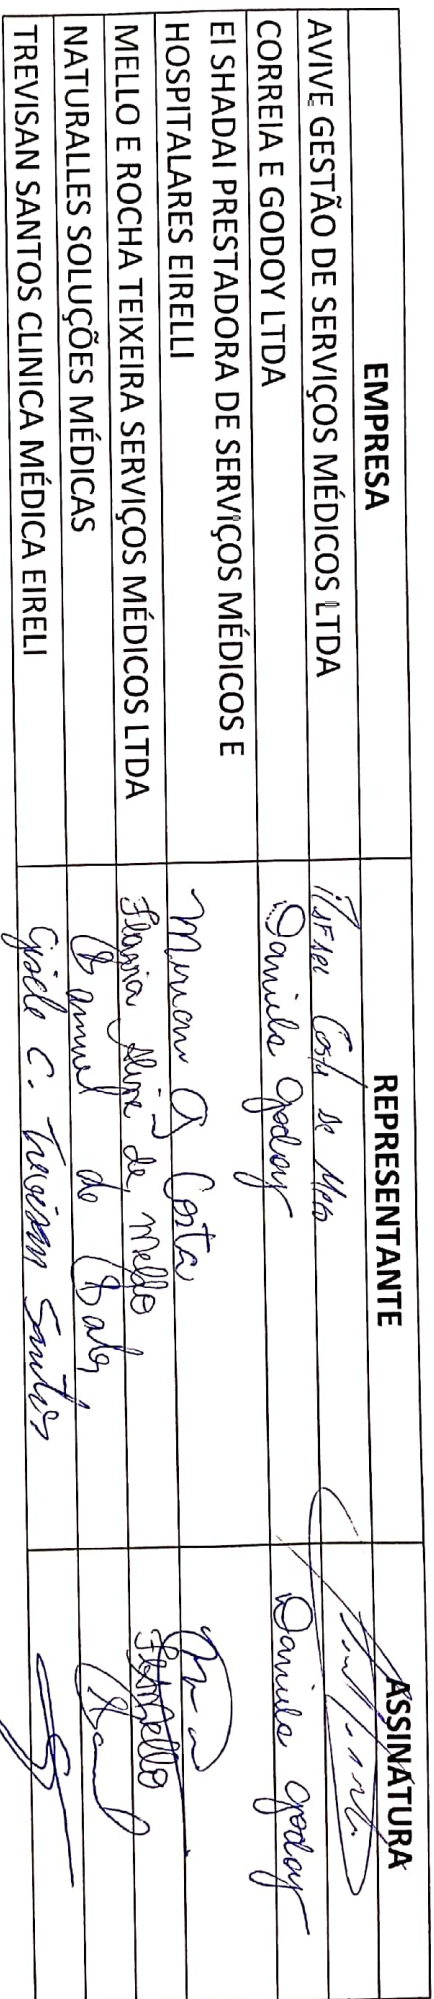 EMPRESA REPRESENTANTE ASSINATURA
AVIVE GESTÃO DE SERVIÇOS MÉDICOS LTDA Costa de
CORREIA E GODOY LTDA Daniela Godoy Daniela Godoy
EI SHADAI PRESTADORA DE SERVIÇOS MÉDICOS E
HOSPITALARES EIRELLI Miriam O Costa
MELLO E ROCHA TEIXEIRA SERVIÇOS MÉDICOS LTDA Flavia de Mello FMello
NATURALLES SOLUÇÕES MÉDICAS
TREVISAN SANTOS CLINICA MÉDICA EIRELI Gisele C. Trevisan Santos